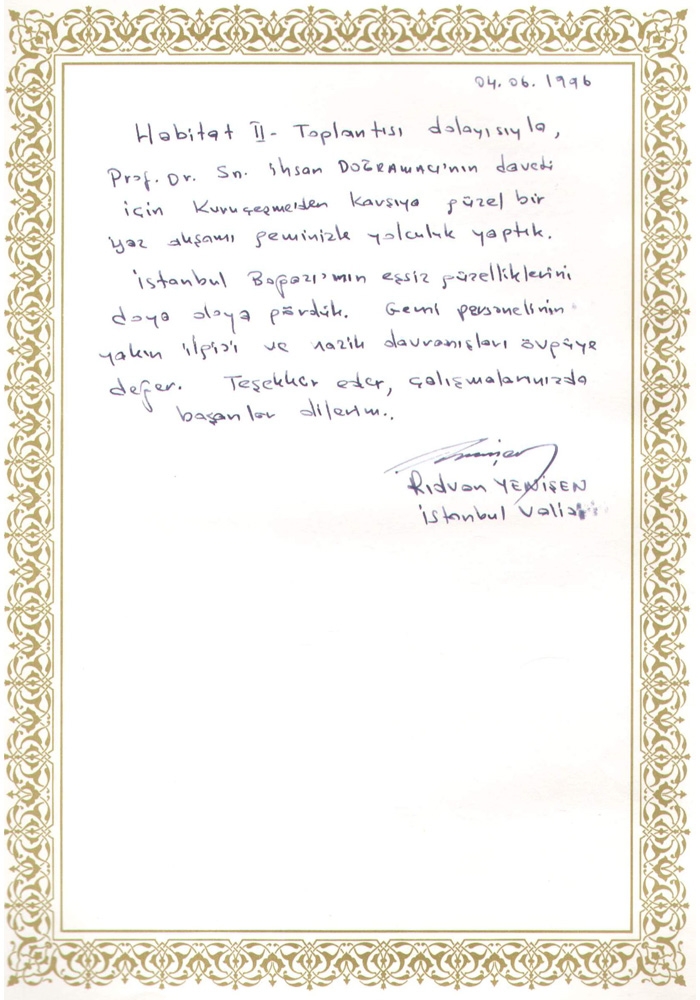 04.06.1996
Habitat II- Toplantısı dolayısıyla,
Prof. Dr. Sn. İhsan DOĞRAMACI'nın daveti
için Kuruçeşme'den karşıya güzel bir
yaz akşamı geminizle yolculuk yaptık.
İstanbul Boğazı'mın eşsiz güzelliklerini
doya doya gördük. Gemi personelinin
yakın ilgisi ve nazik davranışları övgüye
değer. Teşekkür eder, çalışmalarınızda
başarılar dilerim..
Rıdvan YENİŞEN
İstanbul Valisi